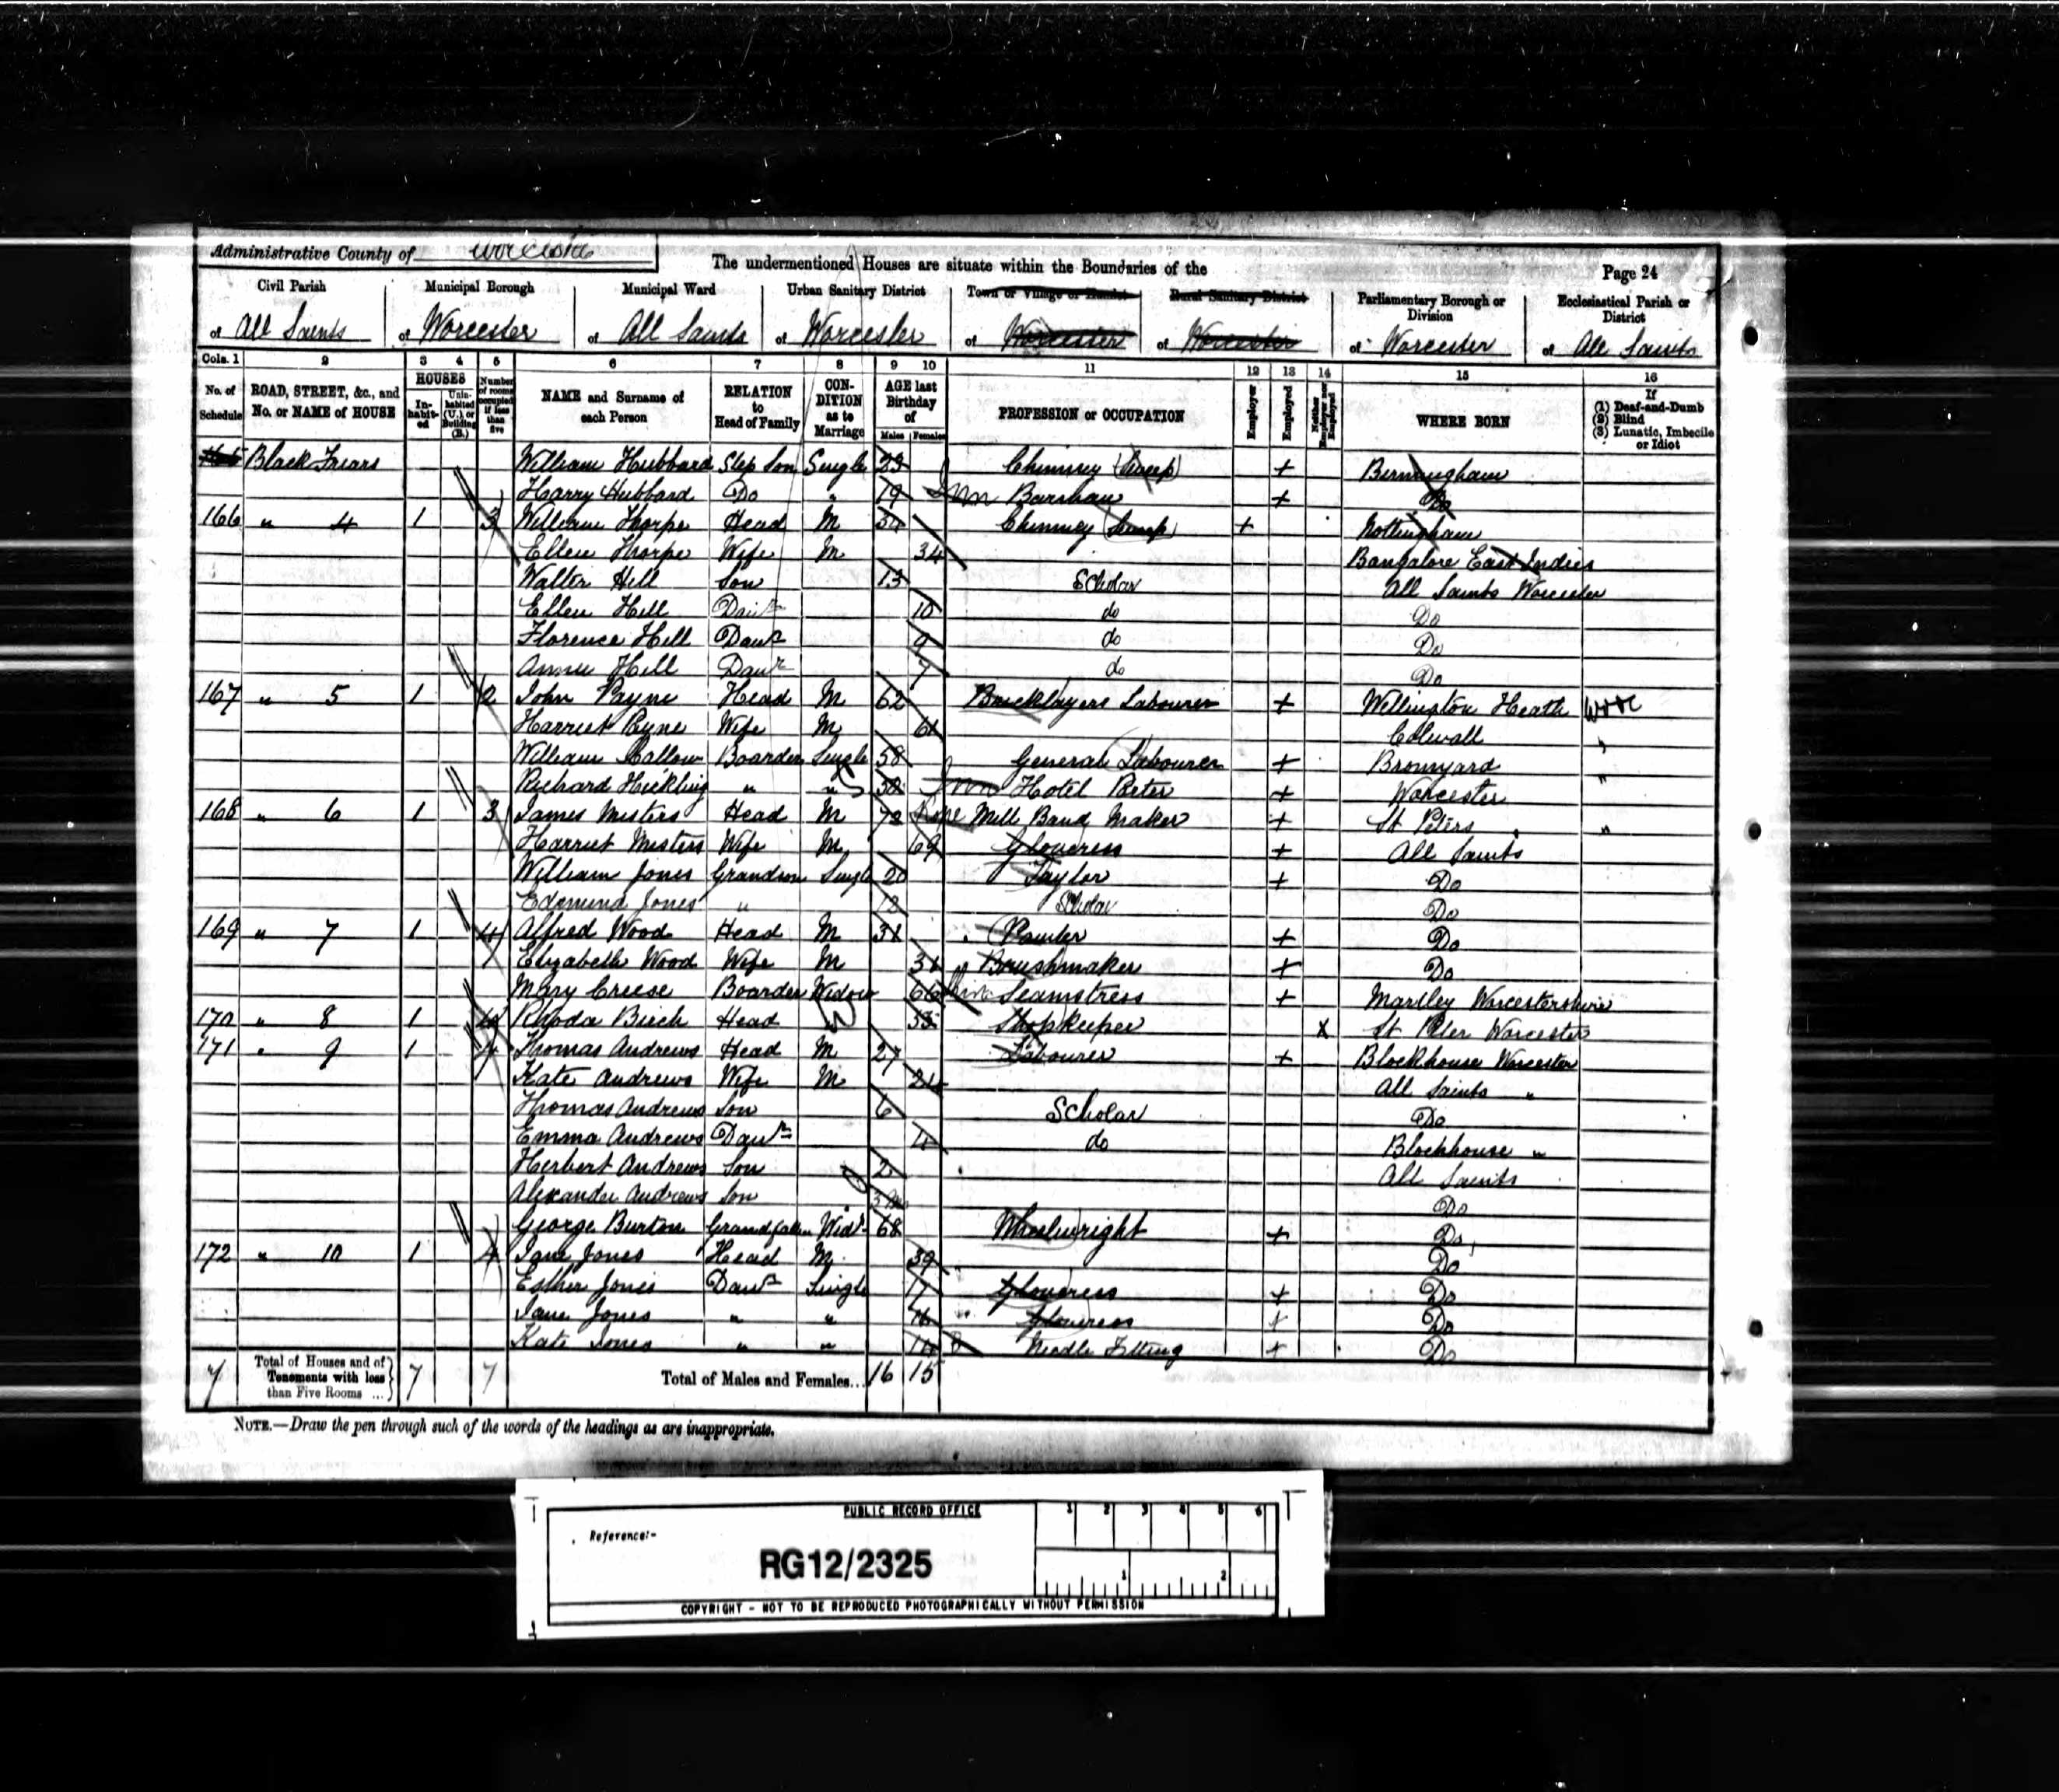 Administrative County of Worcester
The undermentioned Houses are situate within the Boundaries of the
Page 24
Civil Parish Municipal Borough Municipal Ward Urban Sanitary District Town or Village or Hamlet Rural Sanitary District Parliamentary Borough or Division Ecclesiastical Parish or District
of All Saints of Worcester of All Saints of Worcester of Worcester of Worcester of Worcester of All Saints
Cols. 1 2 3 4 5 6 7 8 9 10 11 12 13 14 15 16
No. of Schedule ROAD, STREET, &c., and No. or NAME of HOUSE HOUSES Inhabited Uninhabited (U.) or Building (B.) Number of rooms occupied if less than five NAME and Surname of each Person RELATION to Head of Family CONDITION as to Marriage AGE last Birthday of Males Females PROFESSION or OCCUPATION Employer Employed Neither Employer nor Employed WHERE BORN If (1) Deaf-and-Dumb (2) Blind (3) Lunatic, Imbecile or Idiot
165 Black Friars William Hubbard Step Son Single 23 Chimney Sweep + Birmingham
Harry Hubbard Do " 19 Inn Barman + Do
166 " 4 1 3 William Thorpe Head M Chimney Sweep + Nottingham
Ellen Thorpe Wife M 34 Bangalore East Indies
Walter Hill Son 13 Scholar All Saints Worcester
Ellen Hill Daur 10 do Do
Florence Hill Daur 9 do Do
Annie Hill Daur 7 do Do
167 " 5 1 2 John Payne Head M 62 Bricklayers Labourer + Wellington Heath Worc
Harriet Payne Wife M 61 Colwall "
William Callow Boarder Single 58 General Labourer + Bromyard "
Richard Hickling " " S 38 Inn Hotel Porter + Worcester
168 " 6 1 3 James Misters Head M 72 Rope Mill Band Maker + St Peters "
Harriet Misters Wife M 69 Gloveress + All Saints
William Jones Grandson Single 20 Taylor + Do
Edmund Jones " 12 Scholar Do
169 " 7 1 4 Alfred Wood Head M 31 Painter + Do
Elizabeth Wood Wife M 31 Brushmaker + Do
Mary Creese Boarder Widow 66 Seamstress + Martley Worcestershire
170 " 8 1 4 Rhoda Birch Head W Shopkeeper X St Peter Worcester
171 " 9 1 4 Thomas Andrews Head M 27 Labourer + Blockhouse Worcester
Kate Andrews Wife M 24 All Saints "
Thomas Andrews Son 6 Scholar Do
Emma Andrews Daur 4 do Blockhouse "
Herbert Andrews Son 2 All Saints
Alexander Andrews Son 3 m Do
George Burton Grandfather Widr 68 Wheelwright + Do
172 " 10 1 4 Jane Jones Head M 39 Do
Esther Jones Daur Single 17 Gloveress + Do
Jane Jones " " 16 Gloveress + Do
Kate Jones " " 14 Needle Fitting + Do
7 Total of Houses and of Tenements with less than Five Rooms ... 7 7 Total of Males and Females... 16 15
NOTE.—Draw the pen through such of the words of the headings as are inappropriate.
PUBLIC RECORD OFFICE
1 2 3 4 5 6
Reference:-
RG12/2325
1 2
COPYRIGHT - NOT TO BE REPRODUCED PHOTOGRAPHICALLY WITHOUT PERMISSION